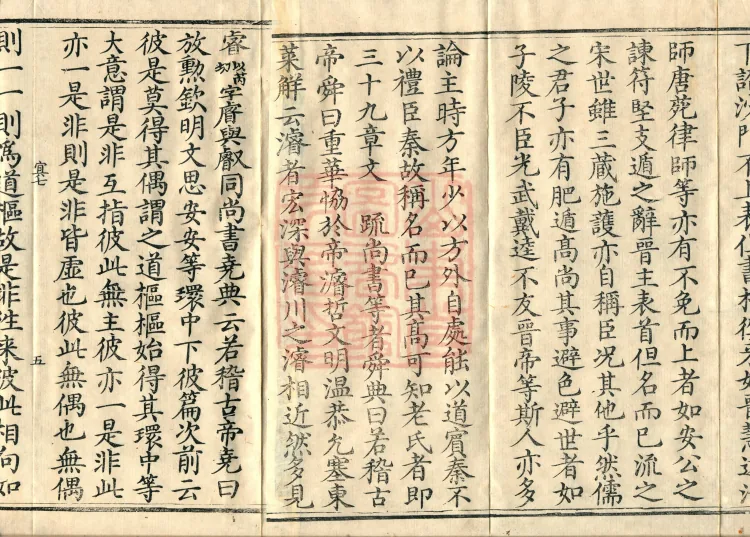 師唐菀律師等亦有不免而上者如安公之
諫符堅支遁之辭晉主表首但名而已流之
宋世雖三藏施護亦自稱臣况其他乎然儒
之君子亦有肥遁高尚其事避色避世者如
子陵不臣光武戴逵不友晉帝等斯人亦多
論主時方年少以方外自處能以道賓秦不
以禮臣秦故稱名而已其高可知老氏者即
三十九章文 䟽尚書等者舜典曰若稽古
帝舜曰重華恊於帝濬哲文明溫恭允塞東
萊解云濬者宏深與濬川之濬相近然多見
睿以芮切字睿與叡同尚書堯典云若稽古帝堯曰
放勲欽明文思安安等環中下彼篇次前云
彼是莫得其偶謂之道樞樞始得其環中等
大意謂是非互指彼此無主彼亦一是非此
亦一是非則是非皆虛也彼此無偶也無偶
寘七 五
則一一則爲道樞故是非往来彼此相向如